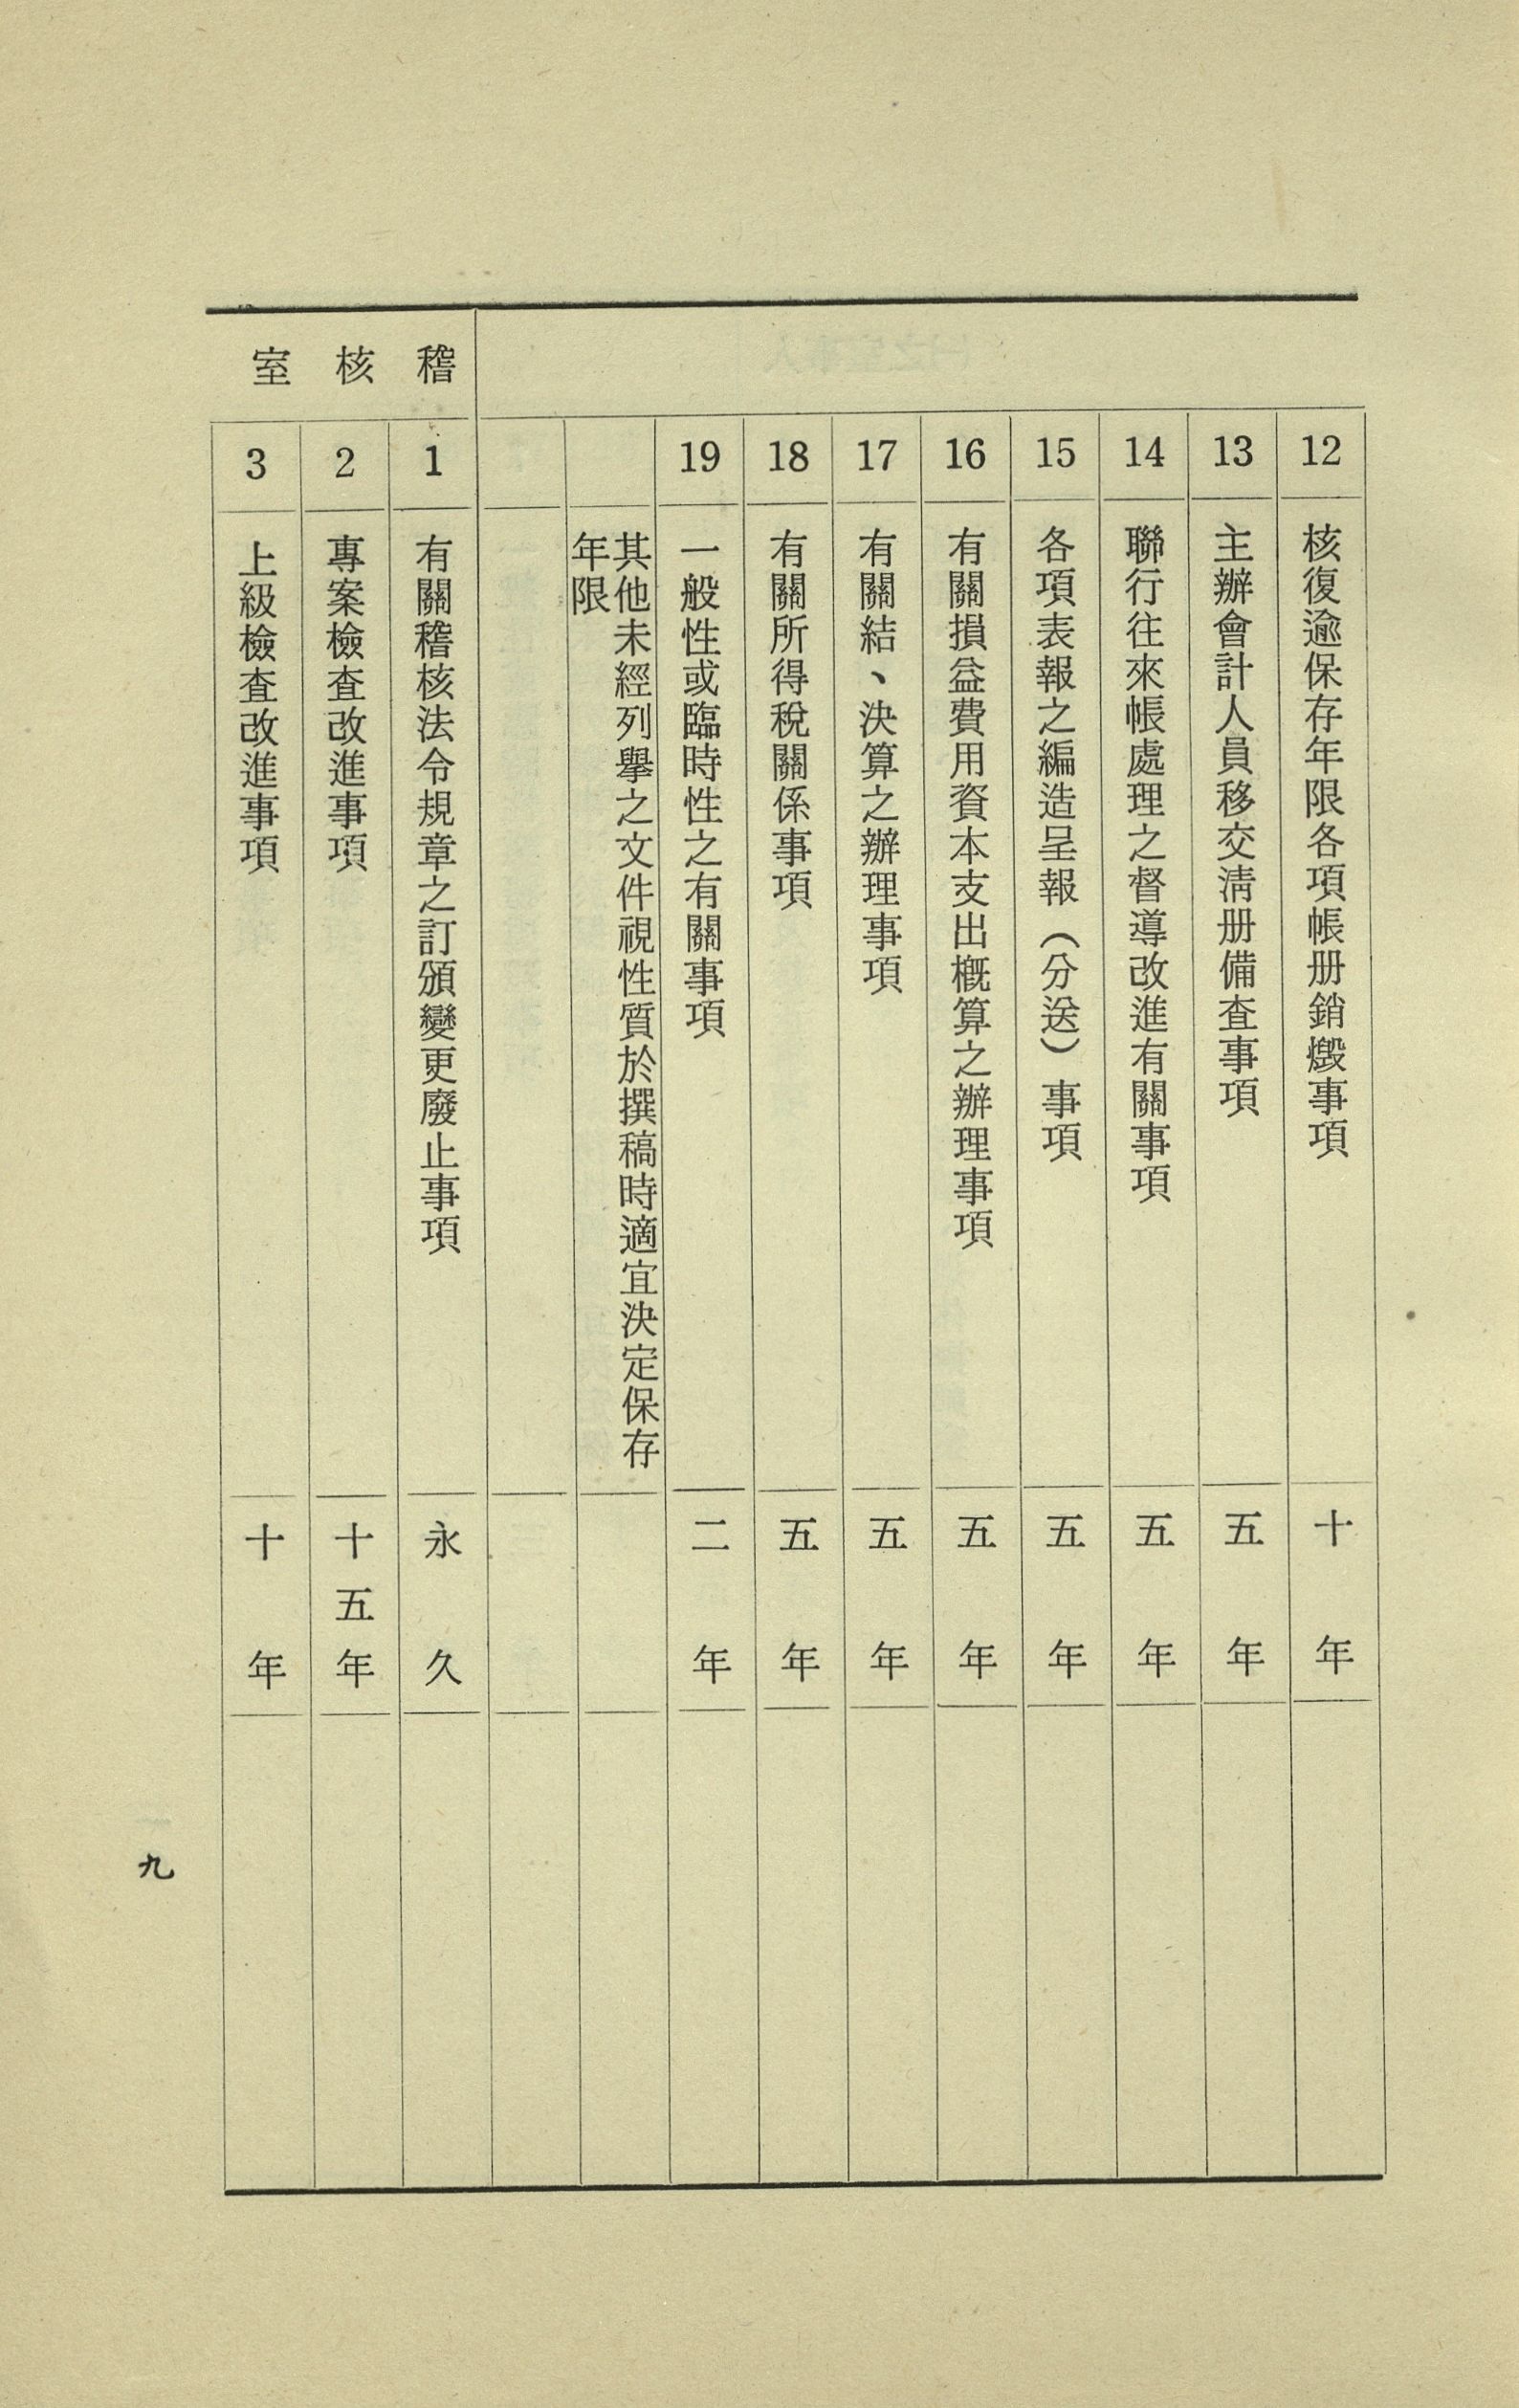 12
核復逾保存年限各項帳册銷燬事項
十年
13
主辦會計人員移交淸册備查事項
五年
14
聯行往來帳處理之督導改進有關事項
五年
15
各項表報之編造呈報（分送）事項
五年
16
有關損益費用資本支出概算之辦理事項
五年
17
有關結、決算之辦理事項
五年
18
有關所得稅關係事項
五年
19
一般性或臨時性之有關事項
二年
其他未經列舉之文件視性質於撰稿時適宜決定保存
年限
稽核室
1
有關稽核法令規章之訂頒變更廢止事項
永久
2
專案檢查改進事項
十五年
3
上級檢查改進事項
十年
九